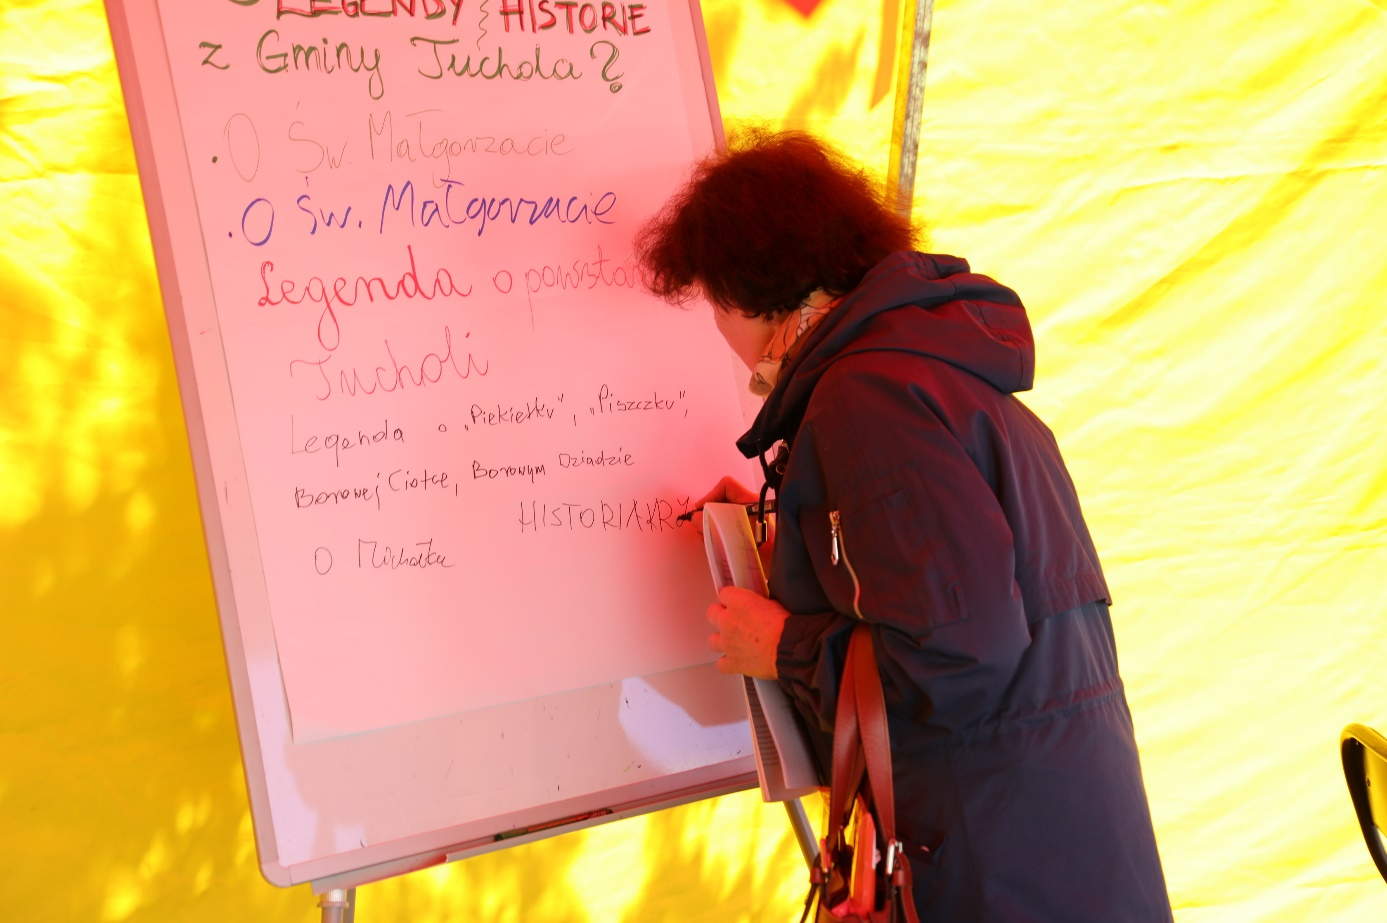 LEGENDY HISTORIE
z Gminy Tuchola?
• O Św. Małgorzacie
• O Św. Małgorzacie
Legenda o powsta
Tucholi
Legenda o „Piekiełku”, „Piszczku”,
Borowej Ciotce, Borowym Dziadzie
HISTORIA KRZ
O Michałku